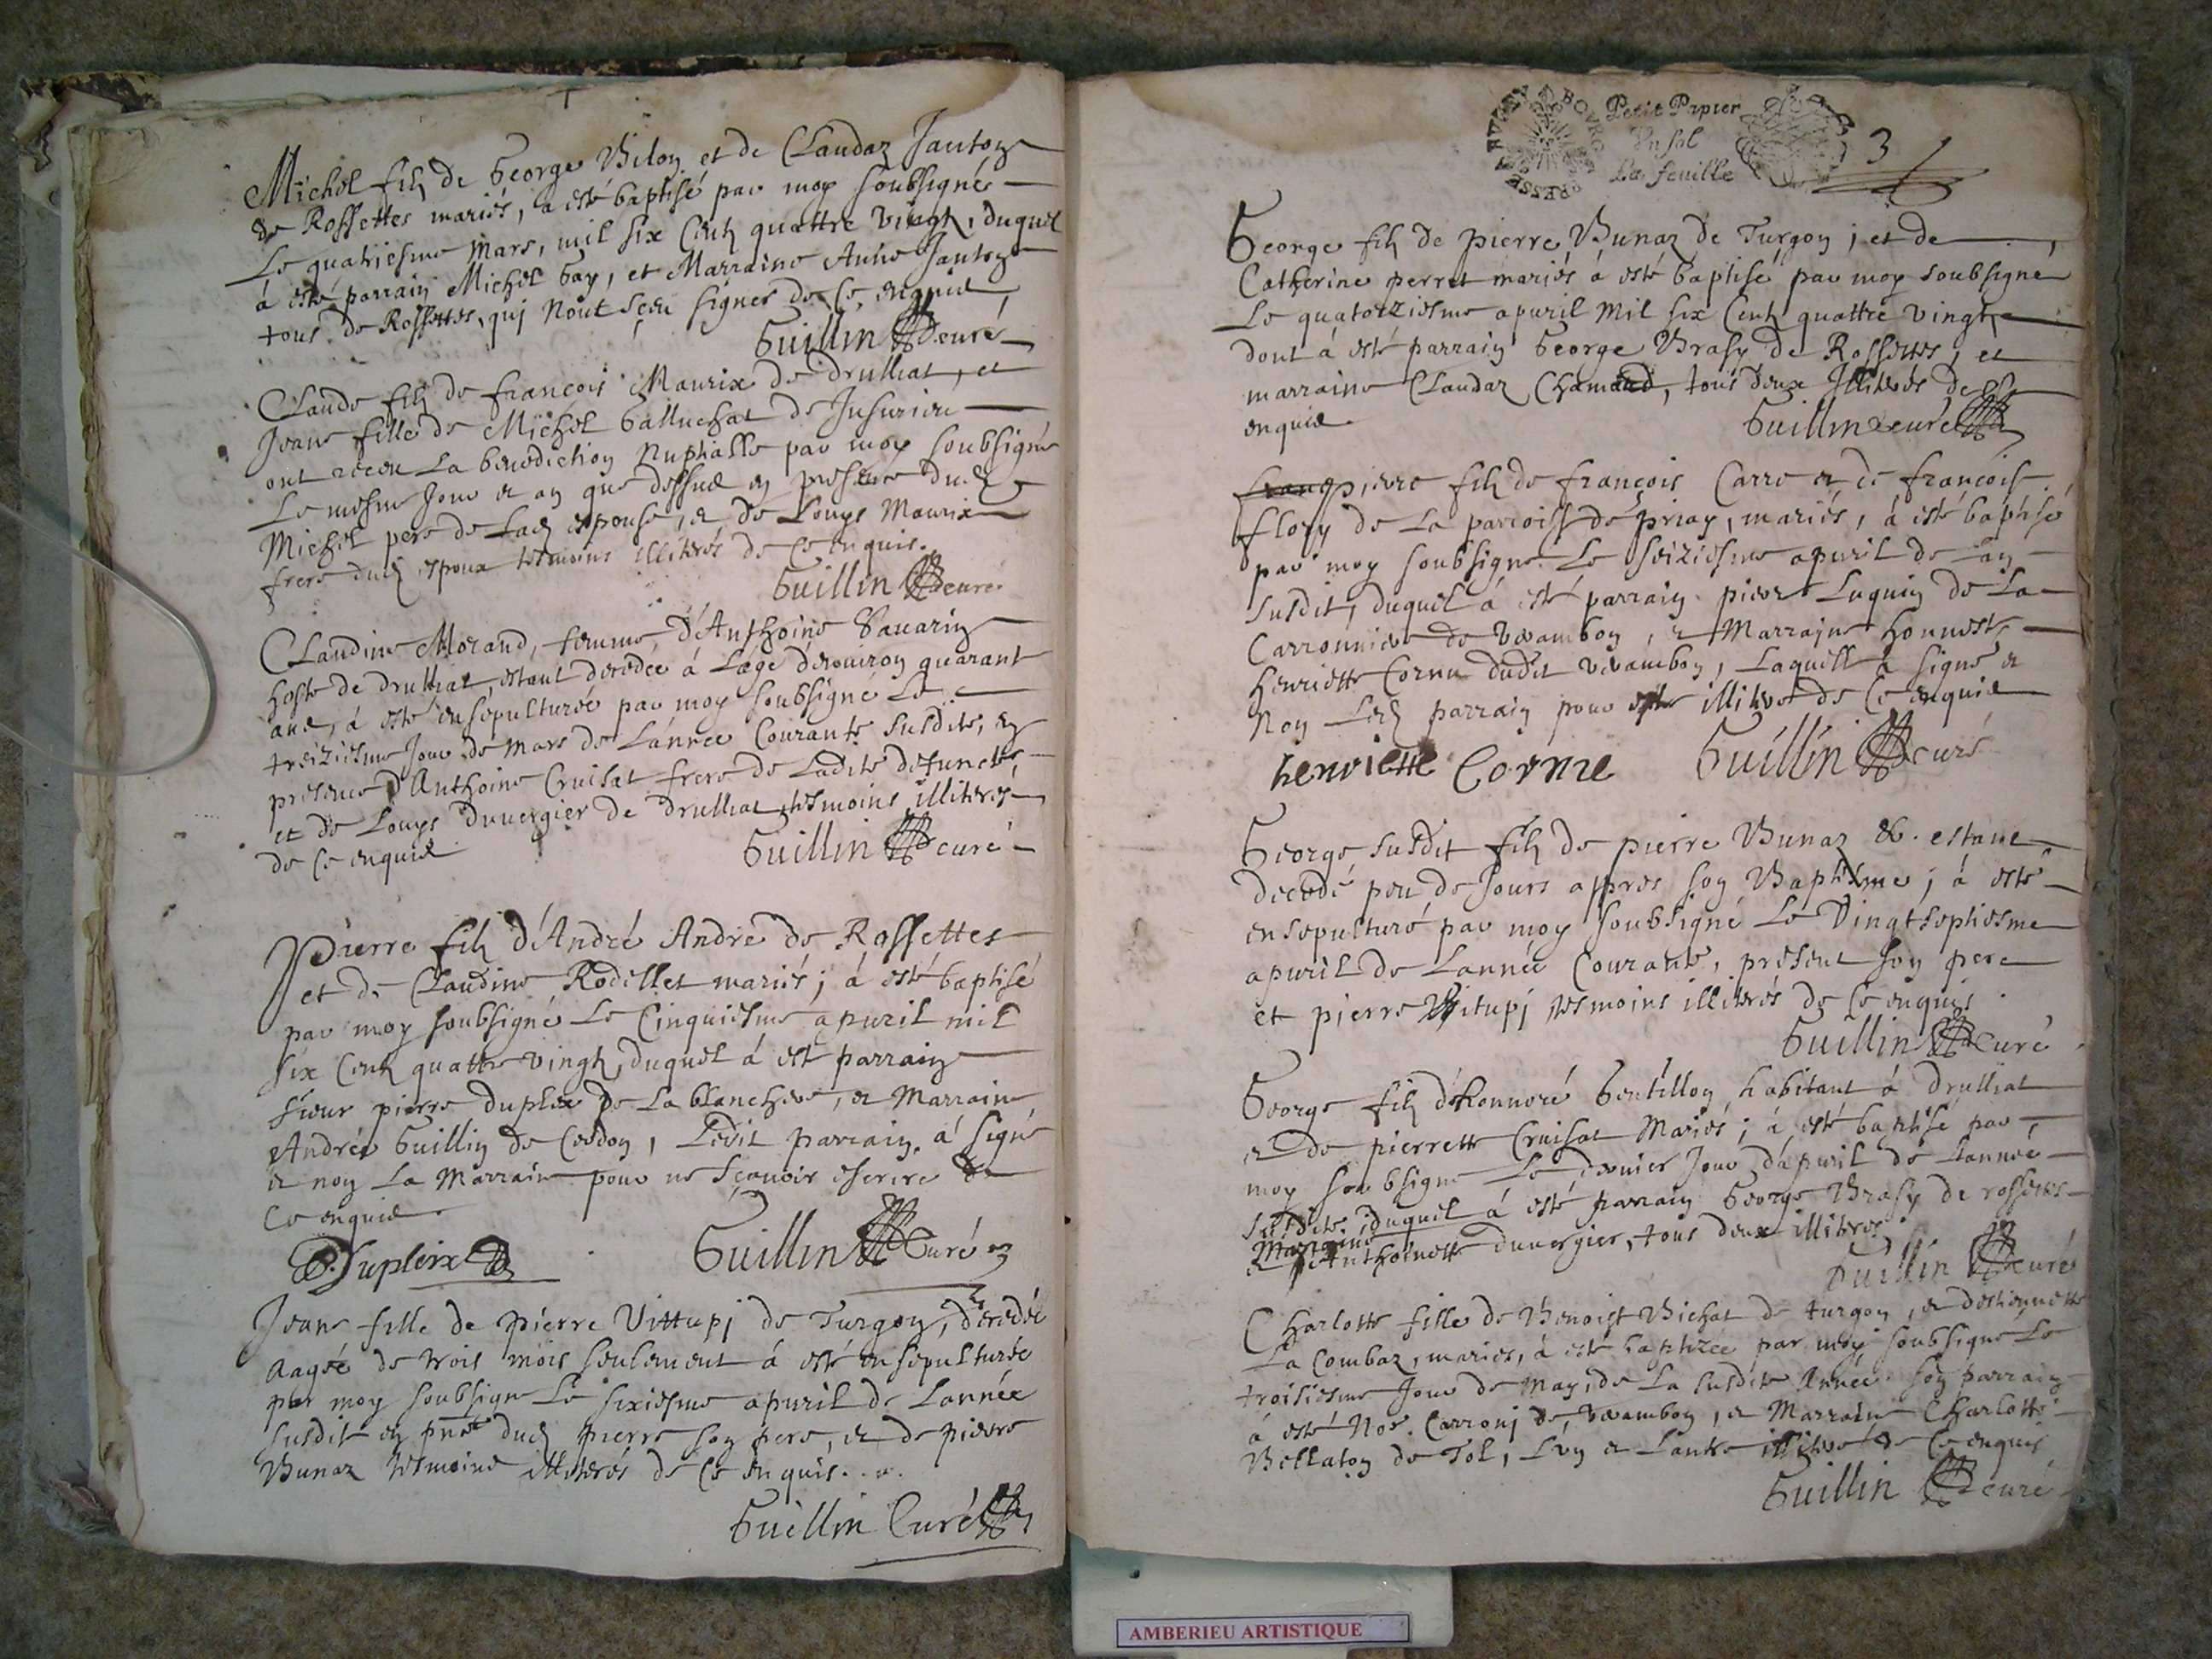 Michel filz de George Bilon et de Claudaz Janton
de Rossettes mariés, a esté baptisé par moy soubsigné
Le quatriesme Mars, mil six Centz quattre vingtz, duquel
á esté parrain Michel Gay, et Marraine Anne Janton
tous de Rossettes, qui n'ont sceu signer de ce enquis,
Guillin curé
Claude filz de francois Maurix de drulliat, et
Jeane fille de Michel Galluchat de Jusurieu
ont receu La benediction nuptialle par moy soubsigné
Le mesme Jour et an que dessus en presence dud.
Michel pere de Lad. espouse, et de Louys Maurix
frere dud. espoux tesmoins illiterés de ce enquis.
Guillin curé
Claudine Morand, femme d'Anthoine Sauarin
hoste de drulliat, estant decedée á Lage d'enuiron quarant
ans, á esté ensepulturée par moy soubsigné Le
treiziesme Jour de Mars de L'année Courante susdite, en
presence d'Anthoine Cruisat frere de Ladite defuncte,
et de Louys duuergier de drulliat tesmoins illiterés
de ce enquis
Guillin curé
Pierre filz d'André André de Rossettes
et de Claudine Rodillet mariés; á esté baptisé
par moy soubsigné Le Cinquiesme apuril mil
six Centz quattre vingtz, duquel á esté parrain
sieur pierre duplex de La blanchere, et Marraine
Andrée Guillin de Cerdon, Ledit parrain á signé
et non La Marraine pour ne sçauoir escrire de
ce enquis.
Dupleix Guillin Curé
Jeane fille de pierre Vittupj de Turgon, decedée
aagée de trois mois seulement á esté ensepulturée
par moy soubsigné Le sixiesme apuril de L'année
susdite en pnce dud. pierre son pere, et de pierre
Bunaz tesmoins illiterés de ce enquis.
Guillin Curé
BOURG BRESSE
Petit Papier
Un sol
La feuille
3
George filz de pierre Bunaz de Turgon; et de
Catherine perret mariés á esté baptisé par moy soubsigné
Le quatorziesme apuril mil six Centz quattre vingtz
dont á esté parrain George Brasy de Rossettes, et
marraine Claudaz Chamaud, tous deux Illiterés de ce
enquis.
Guillin curé
franc pierre filz de françois Carre et de francoise
flory de La paroisse de priay, mariés, á esté baptisé
par moy soubsigné Le seiziesme apuril de L'an
susdit, duquel á esté parrain pierre Luquin de La
Carronniere de Varambon, et Marraine honneste
henriette Cornu dudit Varambon, Laquelle á signé et
non Led. parrain pour estre illiteré de ce enquis
henriette Cornue Guillin curé
George susdit filz de pierre Bunaz &. estant
decedé peu de Jours appres son Baptesme; á esté
ensepulturé par moy soubsigné Le Vingtseptiesme
apuril de L'année Courante, present son pere
et pierre Vitupj tesmoins illiterés de ce enquis.
Guillin Curé
George filz d'honnoré Gentillon habitant á drulliat
et de pierrette Cruisat Mariés; á esté baptisé par
moy soubsigné Le dernier Jour d'apuril de L'année
susdite, duquel á esté parrain George Brasy de rossettes
Marraine
et Anthoinette duuergier, tous deux illiterés
Guillin curé
Charlotte fille de Benoist Bichat de turgon, et d'estiennette
La Combaz, mariés, á esté baptizée par moy soubsigné Le
troisiesme Jour de May, de La susdite Année. son parrain
á esté Noé Carronj de Varambon, et Marraine Charlotte
Bellaton de Tol, L'un et L'autre illiterés de ce enquis
Guillin curé
AMBERIEU ARTISTIQUE